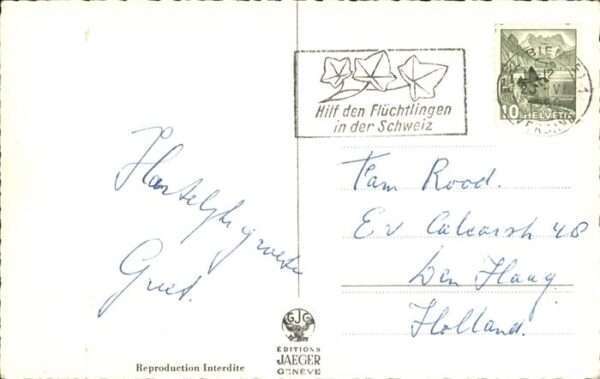 Hilf den Flüchtlingen
in der Schweiz
10 HELVETIA
Hartelijke groeten
Griet.
Fam Rood.
48
Den Haag
Holland.
GJG
EDITIONS
JAEGER
GENÈVE
Reproduction Interdite